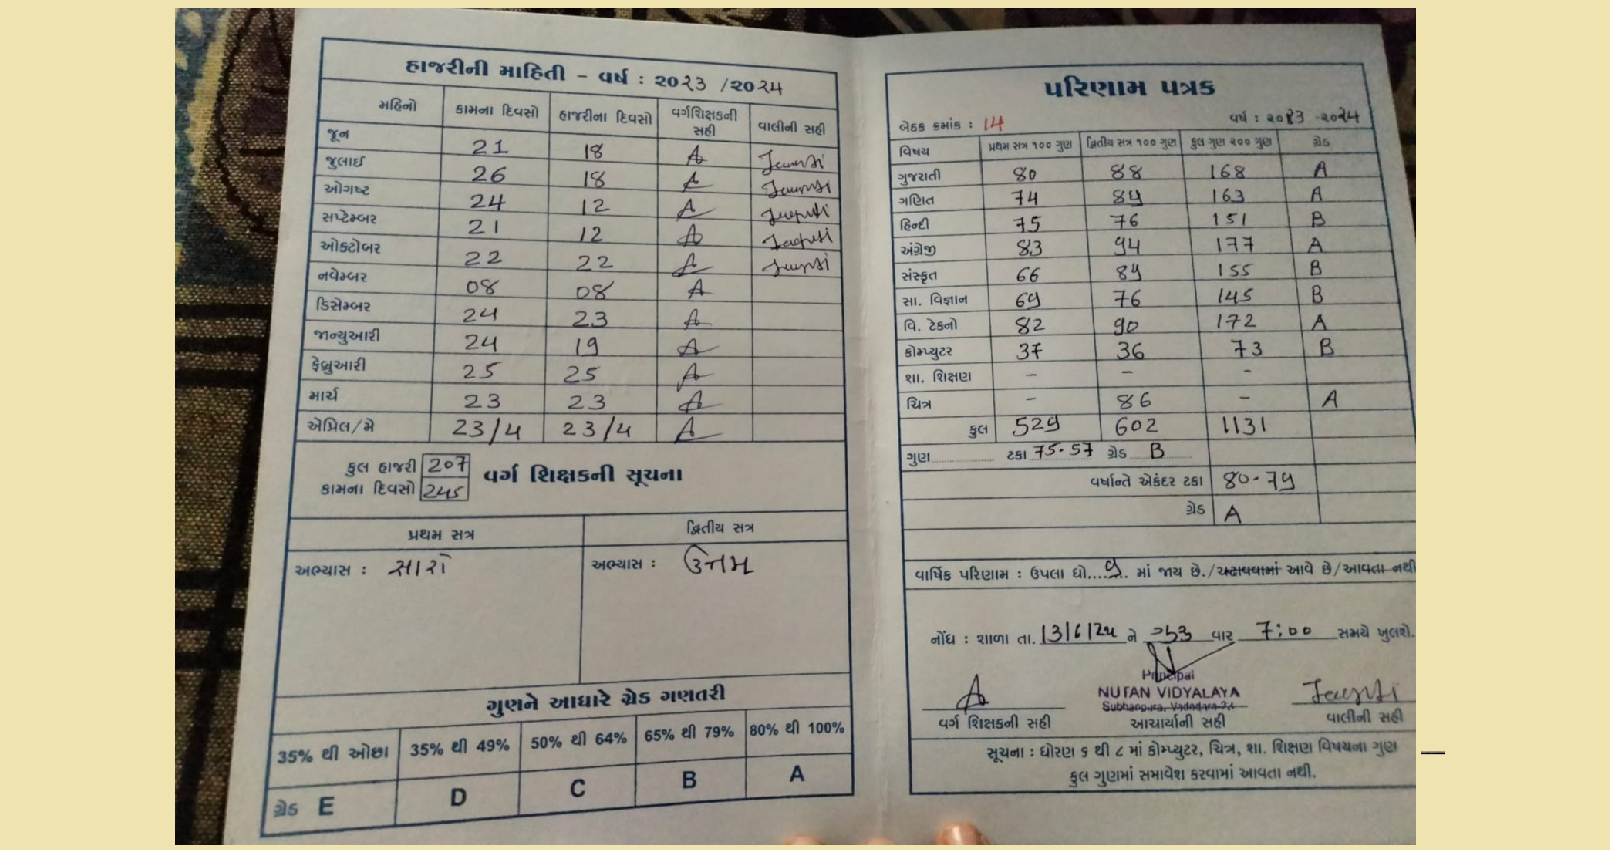 હાજરીની માહિતી - વર્ષ : ૨૦૨૩ /૨૦૨૪
મહિનો કામના દિવસો હાજરીના દિવસો વર્ગશિક્ષકની સહી વાલીની સહી
જૂન 21 18
જુલાઈ 26 18
ઓગષ્ટ 24 12
સપ્ટેમ્બર 21 12
ઓક્ટોબર 22 22
નવેમ્બર 08 08
ડિસેમ્બર 24 23
જાન્યુઆરી 24 19
ફેબ્રુઆરી 25 25
માર્ચ 23 23
એપ્રિલ/મે 23/4 23/4
કુલ હાજરી 207
કામના દિવસો 245
વર્ગ શિક્ષકની સૂચના
પ્રથમ સત્ર દ્વિતીય સત્ર
અભ્યાસ : સારો અભ્યાસ : ઉત્તમ
ગુણને આધારે ગ્રેડ ગણતરી
35% થી ઓછા 35% થી 49% 50% થી 64% 65% થી 79% 80% થી 100%
ગ્રેડ E D C B A
પરિણામ પત્રક
બેઠક ક્રમાંક : 14 વર્ષ : ૨૦૨૩ -૨૦૨૪
વિષય પ્રથમ સત્ર ૧૦૦ ગુણ દ્વિતીય સત્ર ૧૦૦ ગુણ કુલ ગુણ ૨૦૦ ગુણ ગ્રેડ
ગુજરાતી 80 88 168 A
ગણિત 74 89 163 A
હિન્દી 75 76 151 B
અંગ્રેજી 83 94 177 A
સંસ્કૃત 66 89 155 B
સા. વિજ્ઞાન 69 76 145 B
વિ. ટેકનો 82 90 172 A
કોમ્પ્યુટર 37 36 73 B
શા. શિક્ષણ - - -
ચિત્ર - 86 - A
કુલ 529 602 1131
ગુણ ટકા 75.57 ગ્રેડ B
વર્ષાન્તે એકંદર ટકા 80.79
ગ્રેડ A
વાર્ષિક પરિણામ : ઉપલા ધો....9.. માં જાય છે./ચઢાવવામાં આવે છે/આવતા નથી
નોંધ : શાળા તા. 13/6/24 ને વાર 7:00 સમયે ખુલશે.
Principal
NUTAN VIDYALAYA
Subhanpura, Vadodara-23
વર્ગ શિક્ષકની સહી આચાર્યની સહી વાલીની સહી
સૂચના : ધોરણ ૬ થી ૮ માં કોમ્પ્યુટર, ચિત્ર, શા. શિક્ષણ વિષયના ગુણ
કુલ ગુણમાં સમાવેશ કરવામાં આવતા નથી.